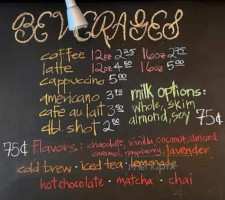 BEVERAGES
coffee 12oz 2.35 16oz 2.75
latte 12oz 4.50 16oz 5.00
cappuccino 5.00
americano 3.15
cafe au lait 3.75
dbl shot 2.60
milk options:
whole, skim
almond, soy 75¢
75¢ Flavors: chocolate, vanilla, coconut, almond
caramel, raspberry, lavender
cold brew · iced tea · lemonade
hot chocolate · matcha · chai